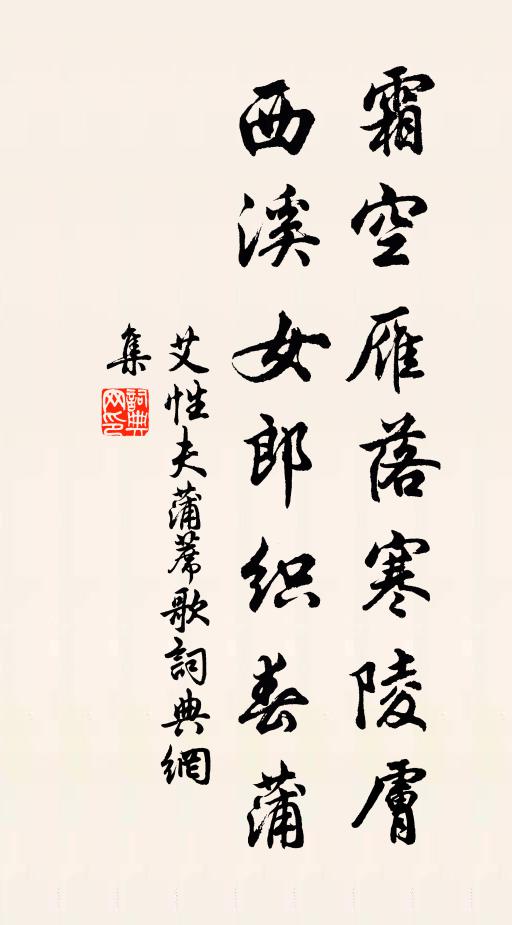 霜空雁落寒陵膚
西溪女郎织春蒲
艾性夫蒲蓆歌詞典網
集
詞典网印